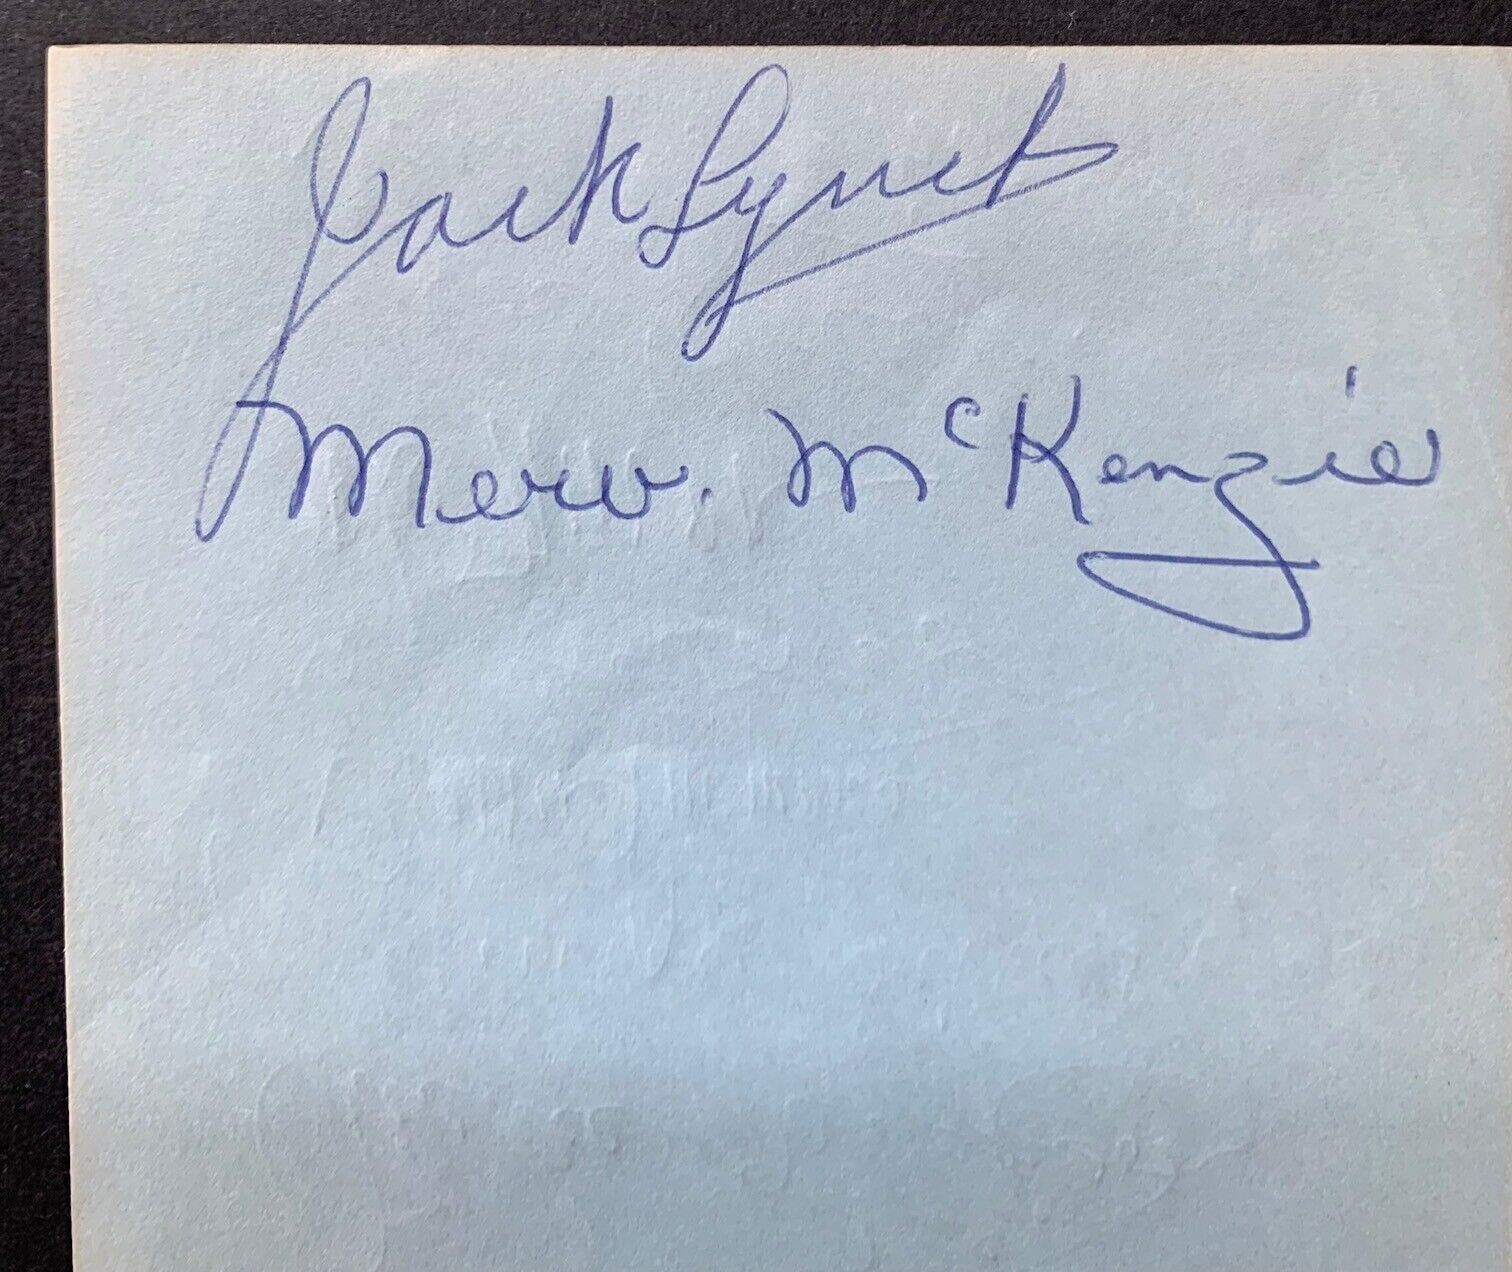 Jack Lynch
Merv. McKenzie